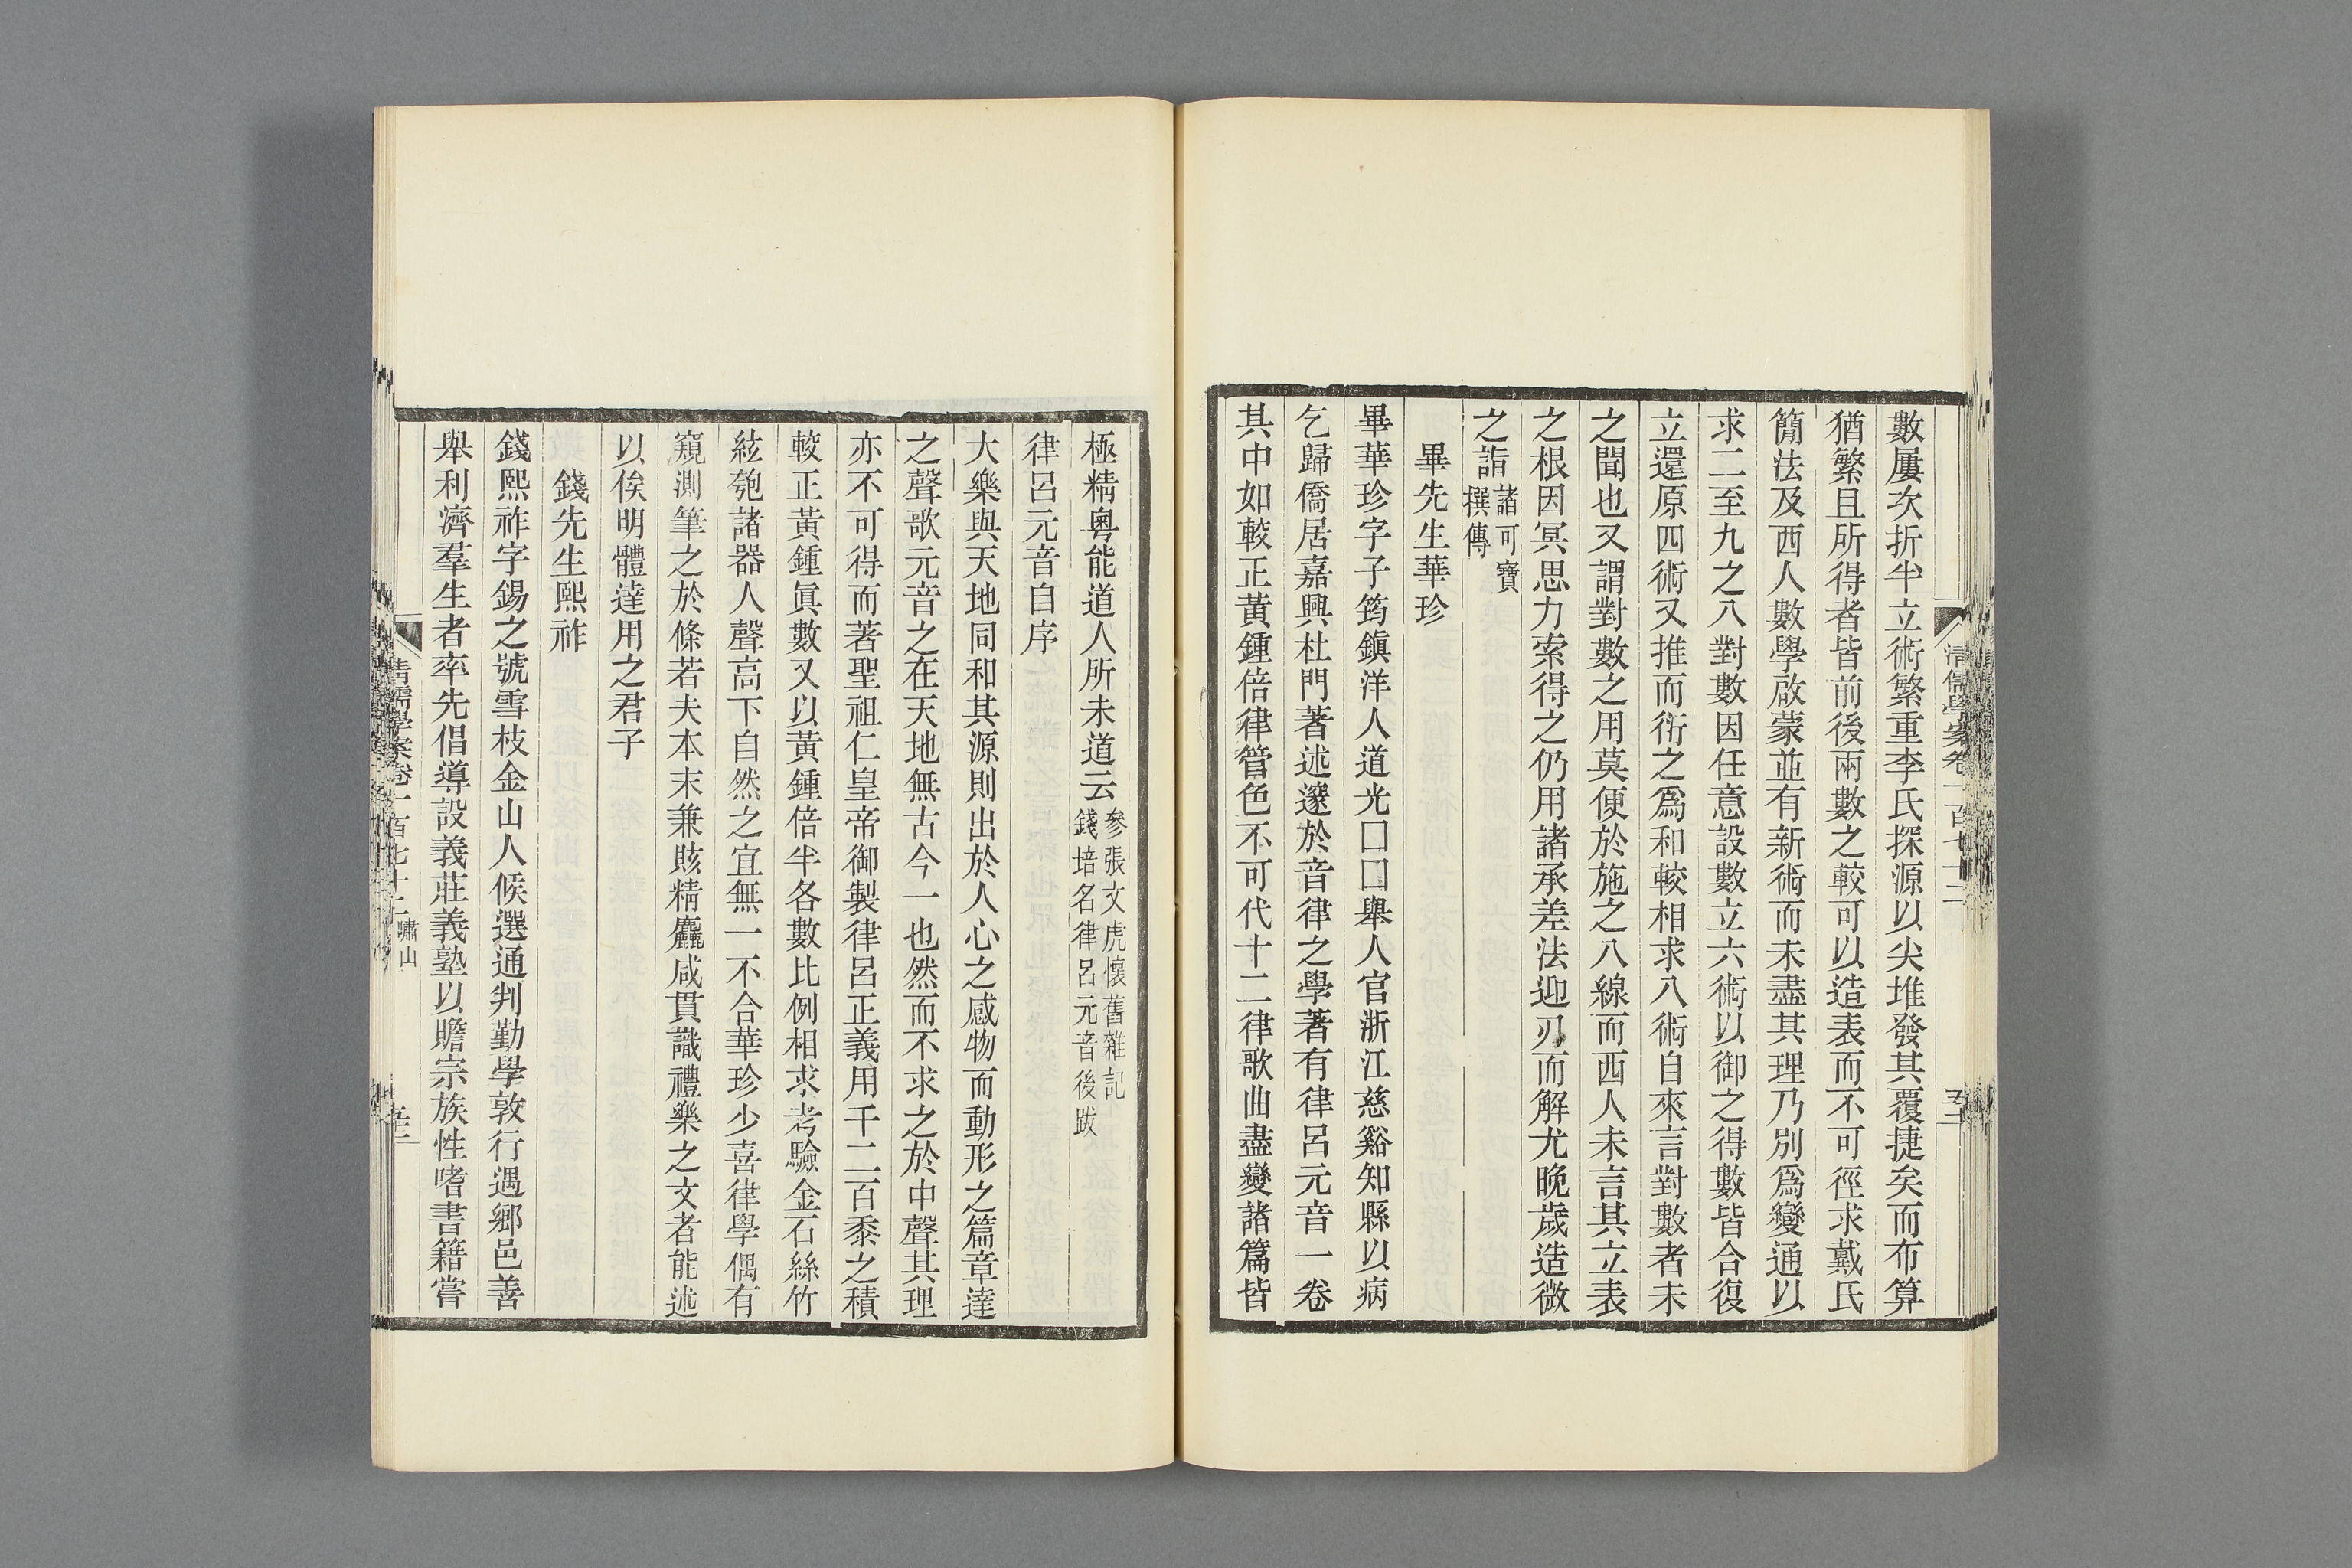 數屢次折半立術繁重李氏探源以尖堆發其覆捷矣而布算
猶繁且所得者皆前後兩數之較可以造表而不可徑求戴氏
簡法及西人數學啟蒙並有新術而未盡其理乃別爲變通以
求二至九之八對數因任意設數立六術以御之得數皆合復
立還原四術又推而衍之爲和較相求八術自來言對數者未
之聞也又謂對數之用莫便於施之八線而西人未言其立表
之根因冥思力索得之仍用諸承差法迎刃而解尤晚歲造微
之詣諸可寶
撰傳
畢先生華珍
畢華珍字子筠鎭洋人道光囗囗舉人官浙江慈谿知縣以病
乞歸僑居嘉興杜門著述邃於音律之學著有律呂元音一卷
其中如較正黃鍾倍律管色不可代十二律歌曲盡變諸篇皆
清儒學案卷一百七十二
極精粵能道人所未道云參張文虎懷舊雜記
錢培名律呂元音後跋
律呂元音自序
大樂與天地同和其源則出於人心之感物而動形之篇章達
之聲歌元音之在天地無古今一也然而不求之於中聲其理
亦不可得而著聖祖仁皇帝御製律呂正義用千二百黍之積
較正黃鍾眞數又以黃鍾倍半各數比例相求考驗金石絲竹
絃匏諸器人聲高下自然之宜無一不合華珍少喜律學偶有
窺測筆之於條若夫本末兼賅精麤咸貫識禮樂之文者能述
以俟明體達用之君子
錢先生熙祚
錢熙祚字錫之號雪枝金山人候選通判勤學敦行遇鄉邑善
舉利濟羣生者率先倡導設義莊義塾以贍宗族性嗜書籍嘗
清儒學案卷一百七十二 嘯山